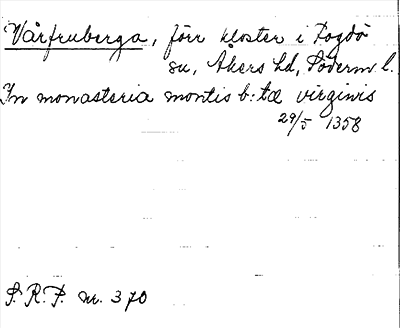 Vårfruberga, förr kloster i Fogdö
sn, Åkers hd, Söderm. l.
In monasteria montis b:tæ virginis
29/5 1358
S.R.P. nr. 370